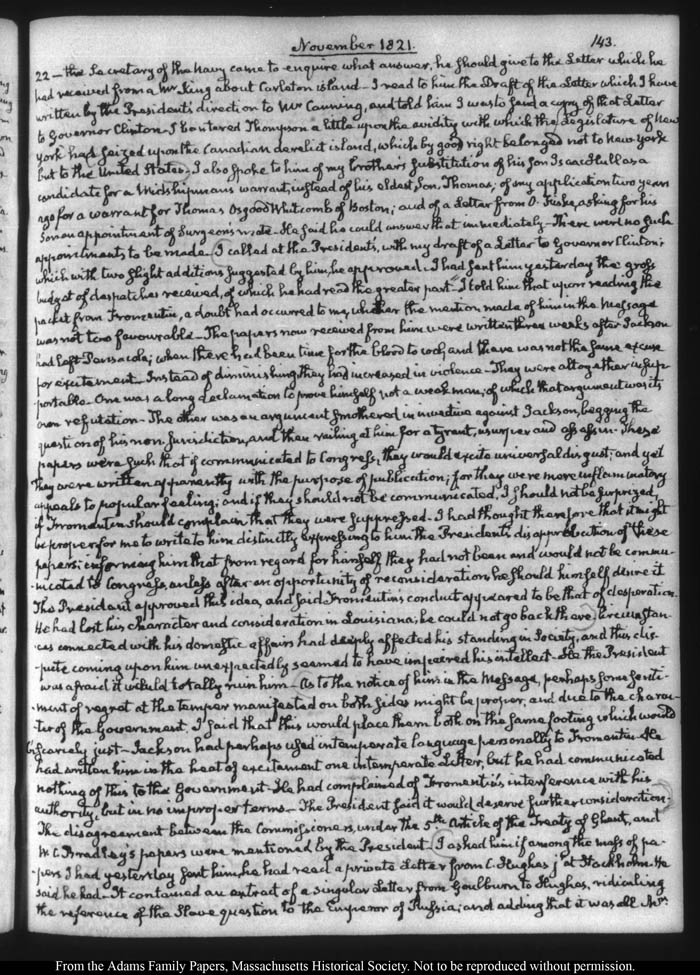 November 1821.
143.
22 — the Secretary of the Navy came to enquire what answer, he should give to the Letter which he
had received from a Mr King about Carleton island — I read to him the Draft of the Letter which I have
written by the President's direction to Mr Canning, and told him I was to send a copy of that Letter
to Governor Clinton — I bantered Thompson a little upon the avidity with which the Legislature of New
York had seized upon the Canadian derelict island, which by good right belonged not to New York
but to the United States — I also spoke to him of my brother's substitution of his Son Isaac Hull as a
candidate for a Midshipman's warrant, instead of his eldest Son, Thomas; of my application two years
ago for a warrant for Thomas Osgood Whitcomb of Boston; and of a Letter from O. Fiske, asking for his
Son an appointment of Surgeons mate — He said he could answer that immediately — There were no such
appointments to be made — I called at the Presidents, with my draft of a Letter to Governor Clinton;
which with two slight additions suggested by him, he approved — I had sent him yesterday the gross
budget of despatches received, of which he had read the greater part — I told him that upon reading the
packet from Fromentin, a doubt had occurred to me, whether the mention made of him in the Message
was not too favourable — The papers now received from him were written three weeks after Jackson
had left Pensacola; when there had been time for the blood to cool, and there was not the same excuse
for excitement — Instead of diminishing they had increased in violence — They were altogether insup-
portable — One was a long declamation to prove himself not a weak man; of which that argument was its
own refutation — The other was an argument smothered in invective against Jackson, begging the
question of his non-jurisdiction, and then railing at him for a tyrant, usurper and assassin — These
papers were such that if communicated to Congress, they would excite universal disgust; and yet
they were written apparently with the purpose of publication; for they were mere inflammatory
appeals to popular feeling; and if they should not be communicated, I should not be surprized,
if Fromentin should complain that they were suppressed — I had thought therefore that it might
be proper for me to write to him distinctly expressing to him the President's disapprobation of these
papers; informing him that from regard for himself they had not been and would not be commu-
-nicated to Congress, unless after an opportunity of reconsideration, he should himself desire it
The President approved this idea, and said Fromentin's conduct appeared to be that of desperation
He had lost his character and consideration in Louisiana; he could not go back there; Circumstan-
ces connected with his domestic affairs had deeply affected his standing in Society, and this dis-
-pute coming upon him unexpectedly seemed to have impaired his intellect — He the President
was afraid it would totally ruin him — As to the notice of him in the Message, perhaps some senti-
-ment of regret at the temper manifested on both sides might be proper, and due to the charac-
-ter of the Government — I said that this would place them both on the same footing which would
be scarcely just — Jackson had perhaps used intemperate language personally to Fromentin — He
had written him in the heat of excitement one intemperate Letter, but he had communicated
nothing of this to the Government — He had complained of Fromentin's interference with his
authority, but in no improper terms — The President said it would deserve further consideration —
The disagreement between the Commissioners, under the 5th Article of the Treaty of Ghent, and
W. C. Bradley's papers were mentioned by the President — I asked him if among the mass of pa-
-pers I had yesterday sent him, he had read a private Letter from C. Hughes jr at Stockholm. He
said he had — It contained an extract of a singular Letter from Goulburn to Hughes, ridiculing
the reference of the Slave question to the Emperor of Russia; and adding that it was all Mr
From the Adams Family Papers, Massachusetts Historical Society. Not to be reproduced without permission.